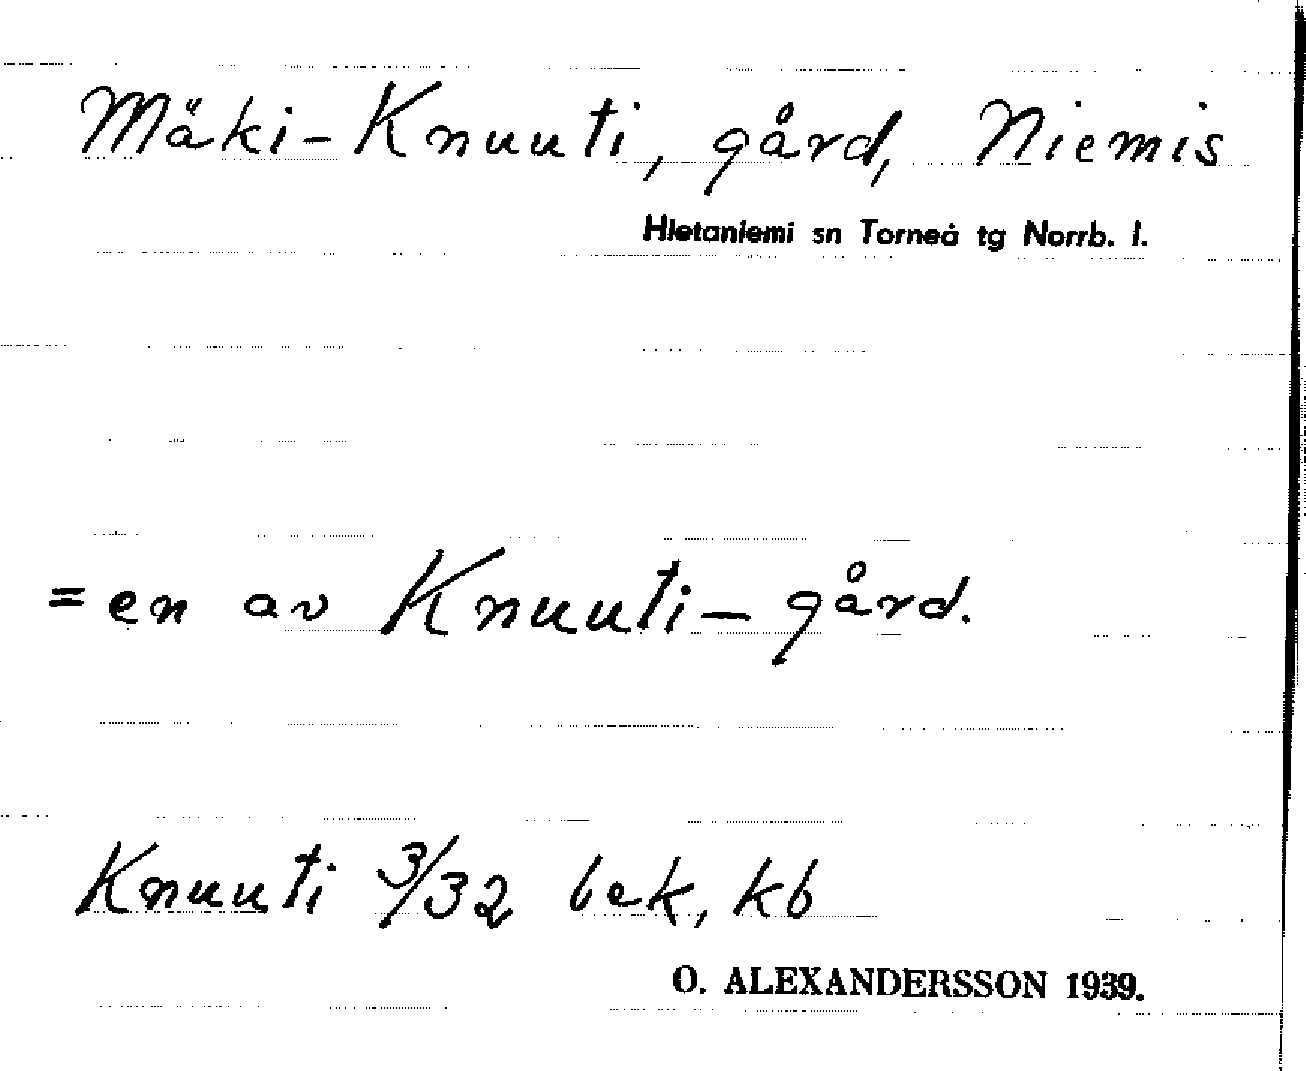 Mäki-Knuuti, gård, Niemis
Hietaniemi sn Torneå tg Norrb. l.
= en av Knuuti-gård.
Knuuti 3/32 bek, kb
O. ALEXANDERSSON 1939.